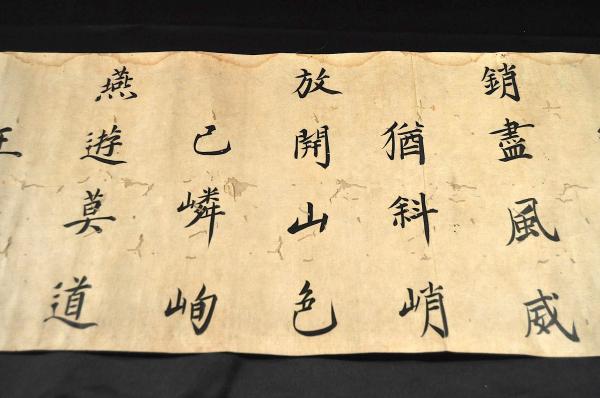 銷盡風威
猶斜峭
放開山色
已嶙峋
燕遊莫道